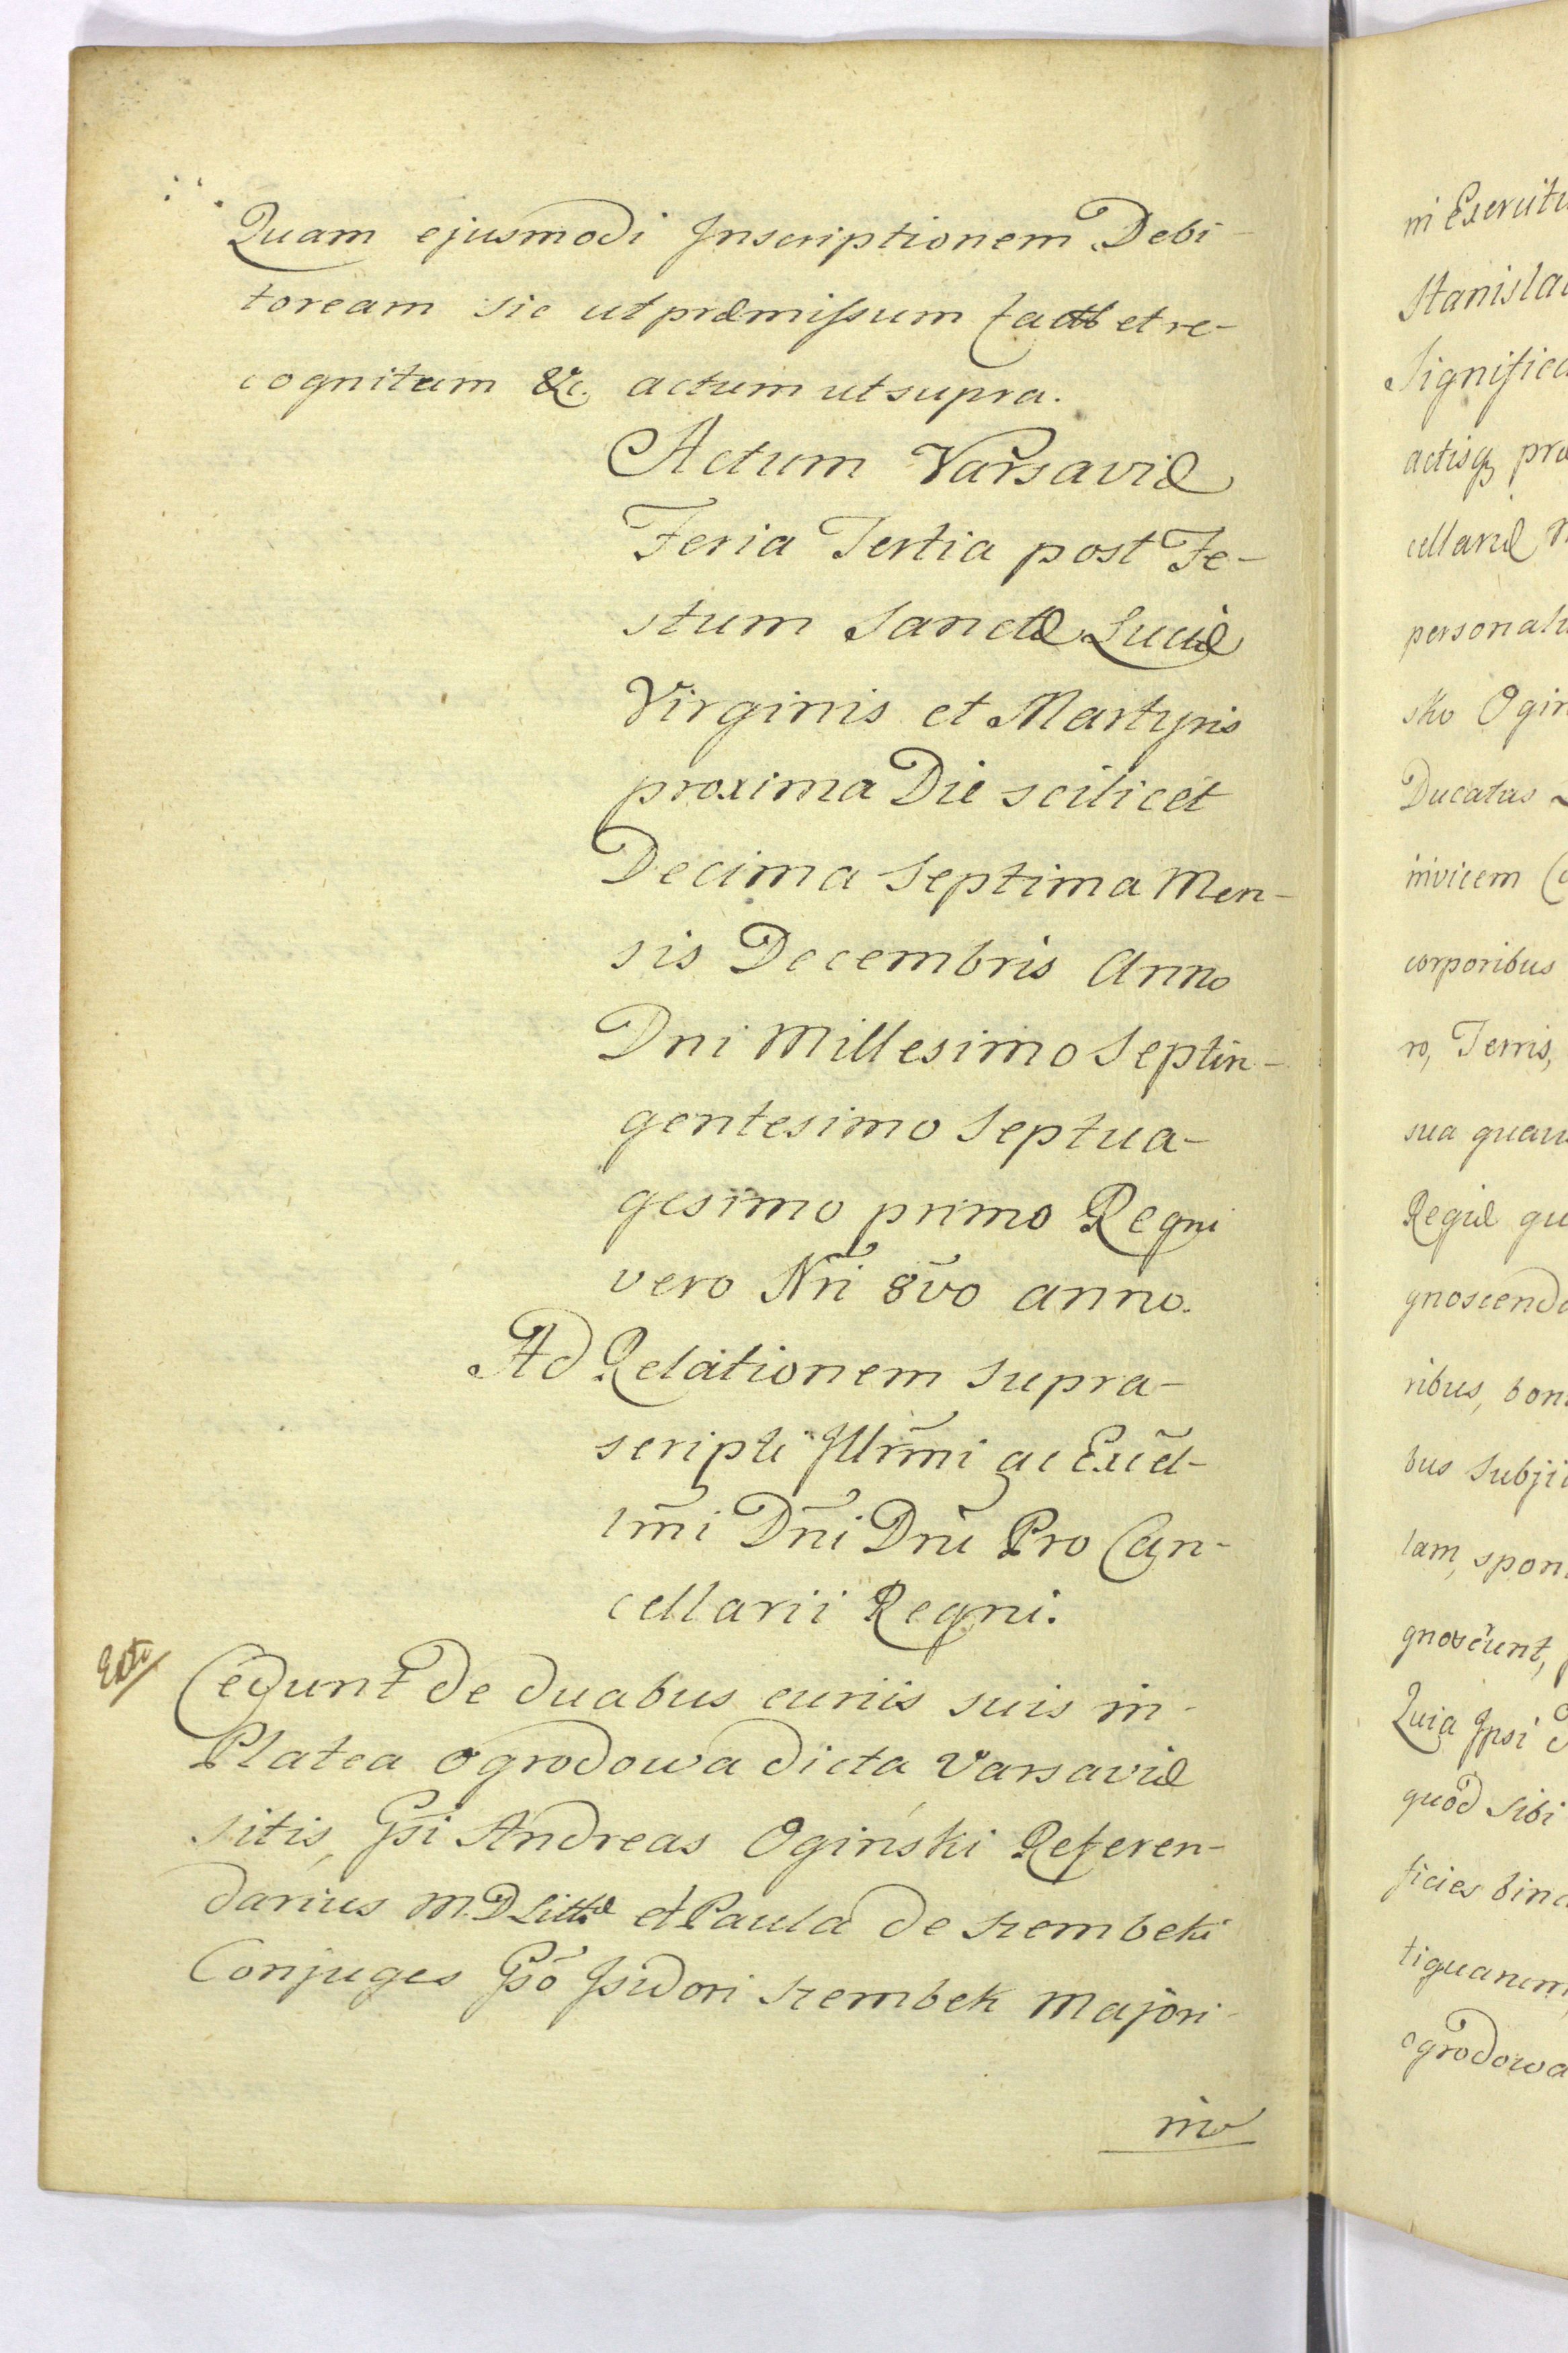 Quam ejusmodi Inscriptionem Debi-
toream sic ut præmissum et re-
cognitam &c. actum ut supra.
Actum Varsaviæ
Feria Tertia post Fe-
stum Sanctæ Luciæ
Virginis et Martyris
proxima Die scilicet
Decima Septima Men-
sis Decembris Anno
Dni Millesimo Septin-
gentesimo Septua-
gesimo primo Regni
vero Nri 8vo anno.
Ad Relationem supra-
scripti Illrmi ac Excel-
lmi Dni Dni Pro Can-
cellarii Regni.
Cedunt de duabus curiis suis in
Platea ogrodowa dicta Varsaviæ
sitis, Gsi Andreas Ogiński Referen-
darius M.D Litt. et Paula de Szembeki
Conjuges Gso Isidori Szembek Majori
ni Exercitu
Stanisla
Significa
actisq, pra
cellariæ
personali
sko Ogin
Ducatus
invicem
corporibus
ro, Terris,
sua quau
Regiæ qu
gnoscendo
ribus, bon
bus Subjii
lam, spon
gnoscunt,
Quia Ipsi
quod sibi
ficies bin
tiguanim
ogrodowa